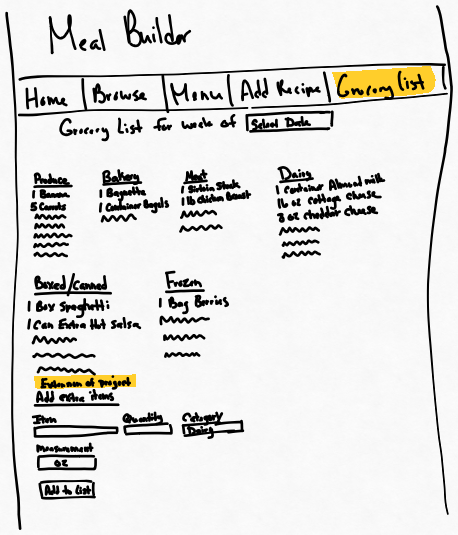 Meal Builder
Home Browse Menu Add Recipe Grocery list
Grocery List for week of Select Date
Produce
1 Banana
5 Carrots
Bakery
1 Baguette
1 Container Bagels
Meat
1 Sirloin Steak
1 lb Chicken Breast
Dairy
1 Container Almond milk
16 oz cottage cheese
8 oz cheddar cheese
Boxed/Canned
1 Box Spaghetti
1 Can Extra Hot Salsa
Frozen
1 Bag Berries
Extension of project
Add extra items
Item Quantity Category
Dairy
Measurement
oz
Add to list